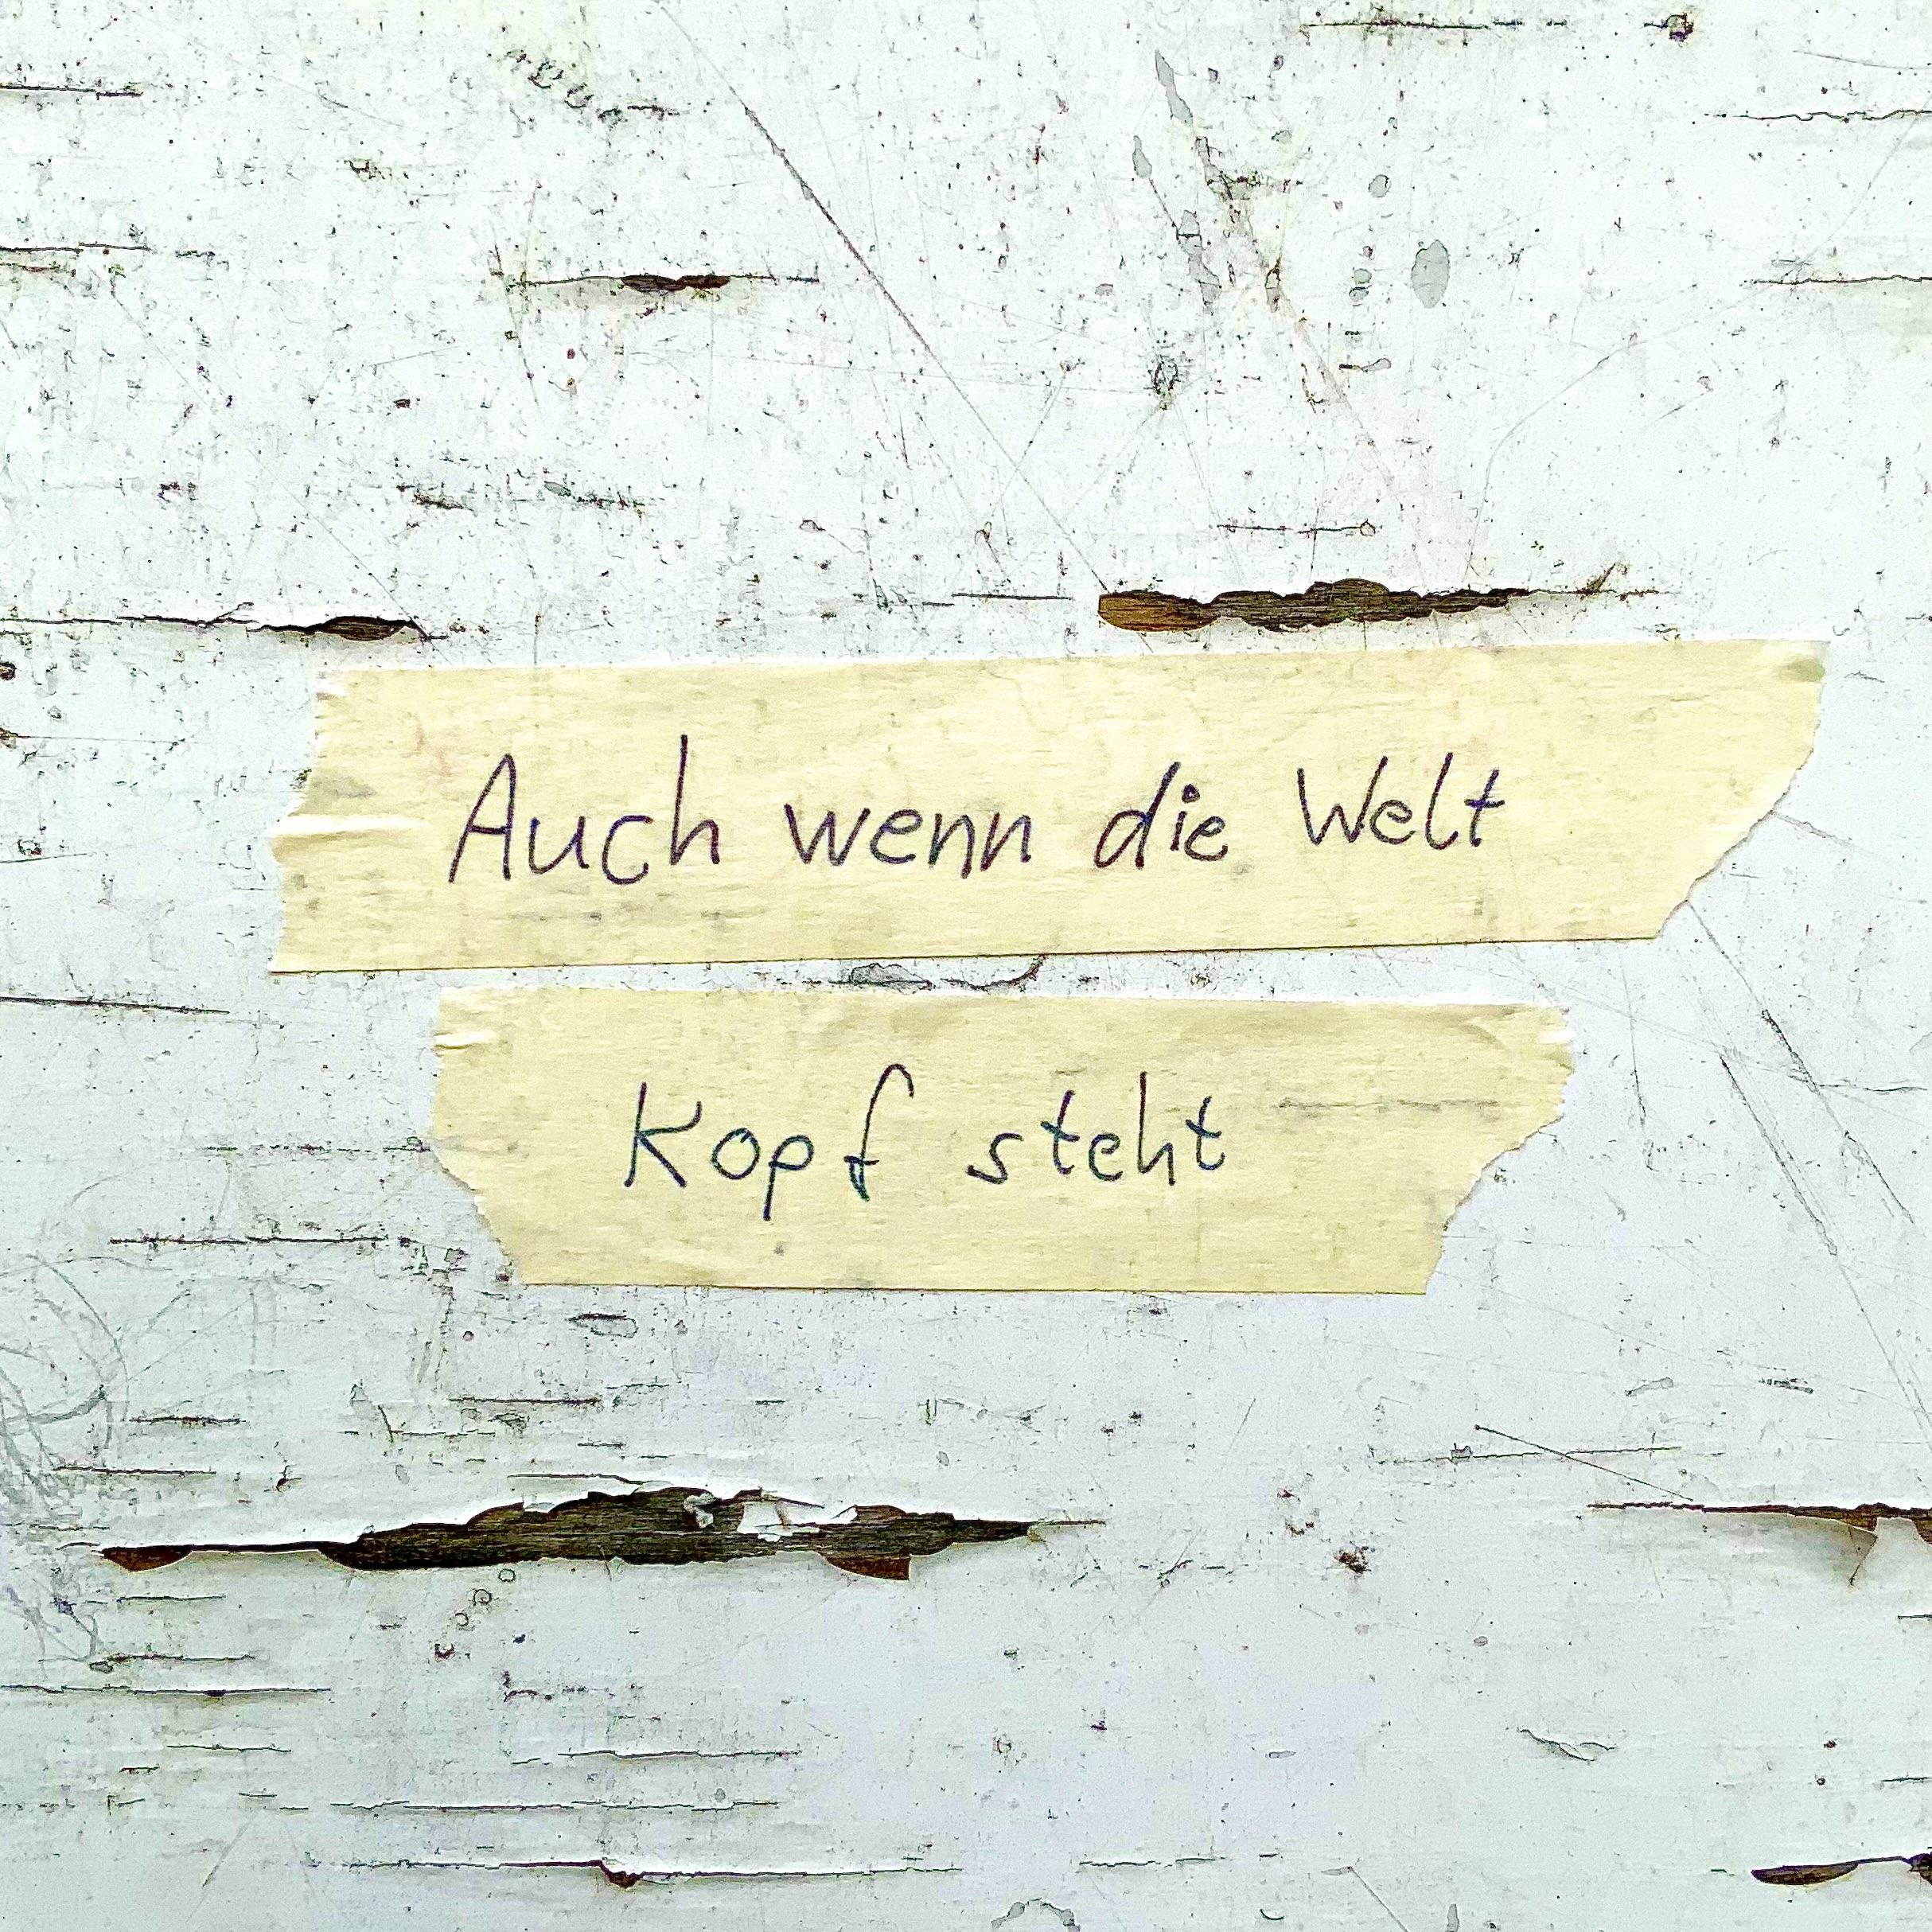 Auch wenn die Welt
Kopf steht